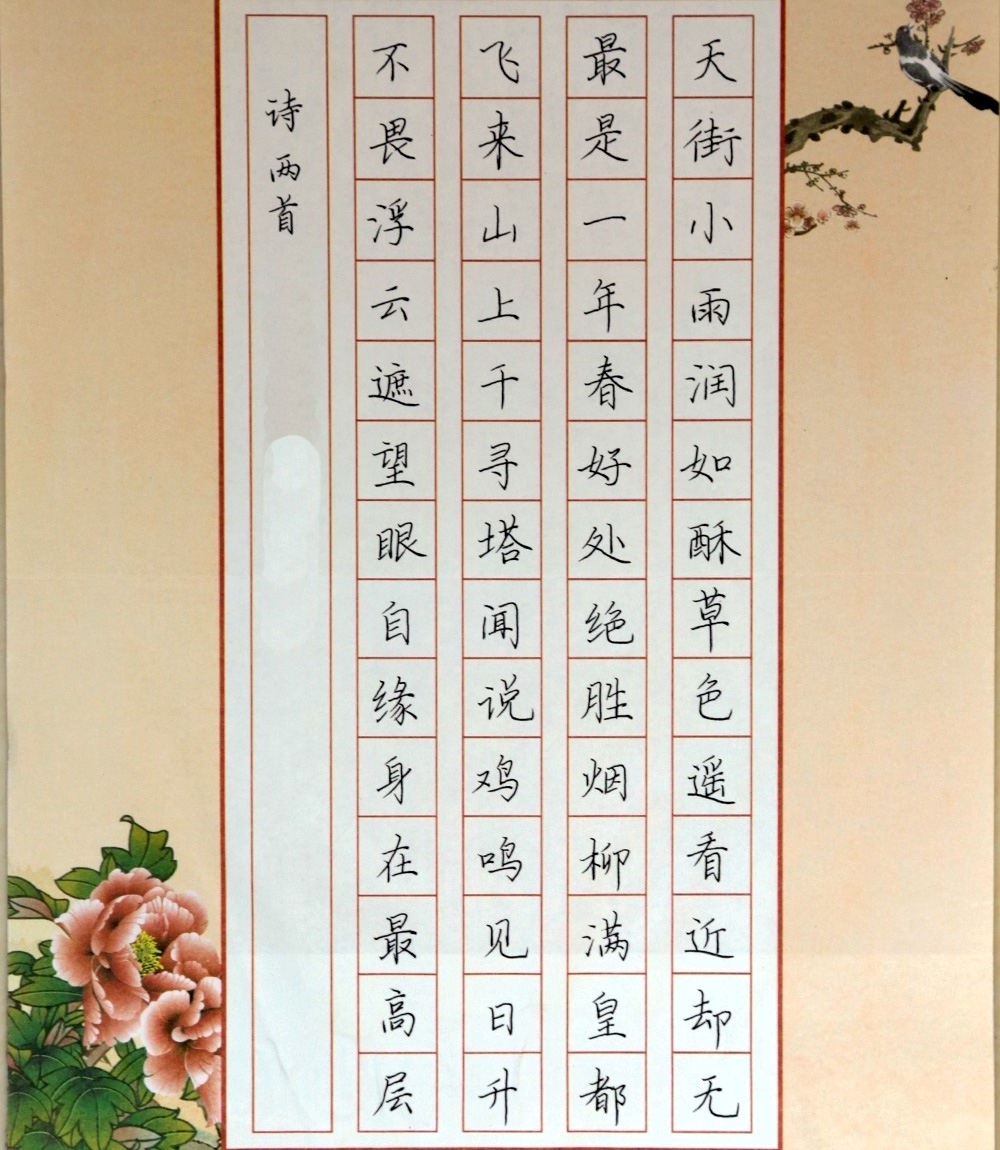 天街小雨润如酥草色遥看近却无
最是一年春好处绝胜烟柳满皇都
飞来山上千寻塔闻说鸡鸣见日升
不畏浮云遮望眼自缘身在最高层
诗两首